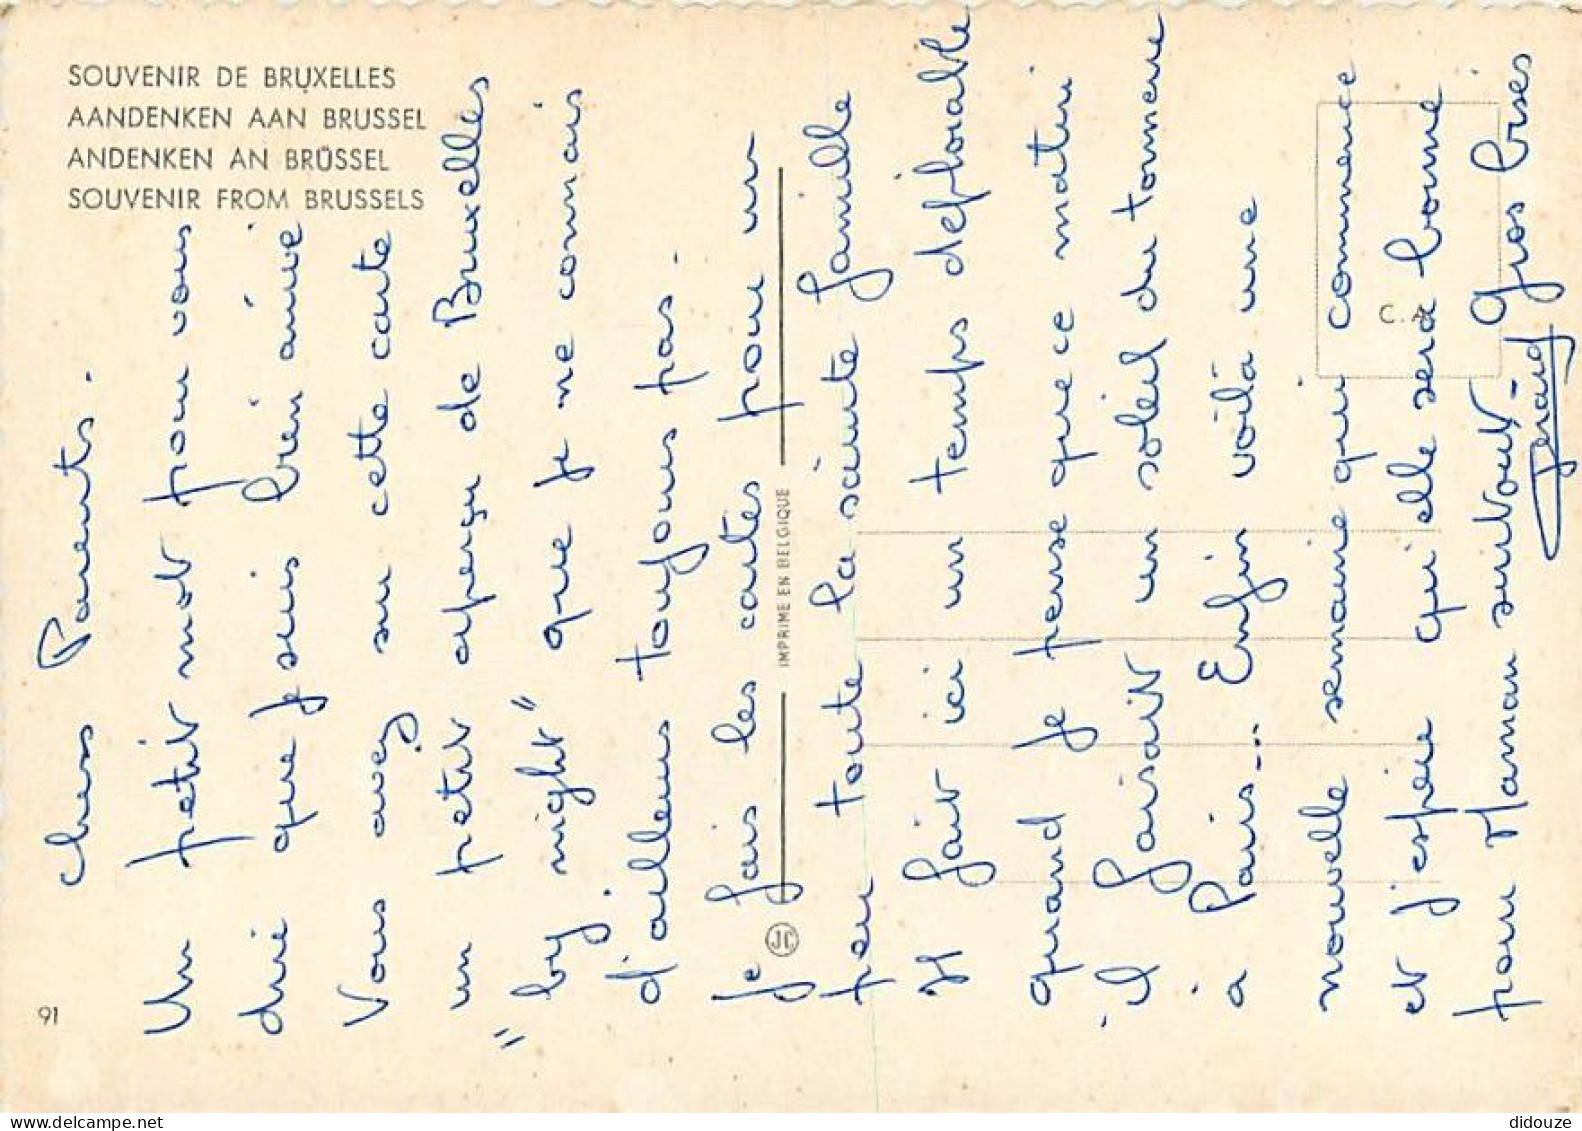 SOUVENIR DE BRUXELLES
AANDENKEN AAN BRUSSEL
ANDENKEN AN BRÜSSEL
SOUVENIR FROM BRUSSELS
91
Chers Parents.
Un petit mot pour vous
dire que je suis bien arrivé
Vous avez sur cette carte
un petit aperçu de Bruxelles
"by night" que je ne connais
d'ailleurs toujours pas.
Je fais les cartes pour un
peu toute la sainte famille
Il fait ici un temps déplorable
quand je pense que ce matin
il faisait un soleil du tonnerre
à Paris... Enfin voilà une
nouvelle semaine qui commence
et j'espère qu'elle sera bonne
pour Maman surtout. Gros bises
Gérard
IMPRIME EN BELGIQUE
JC
C.A
didouze